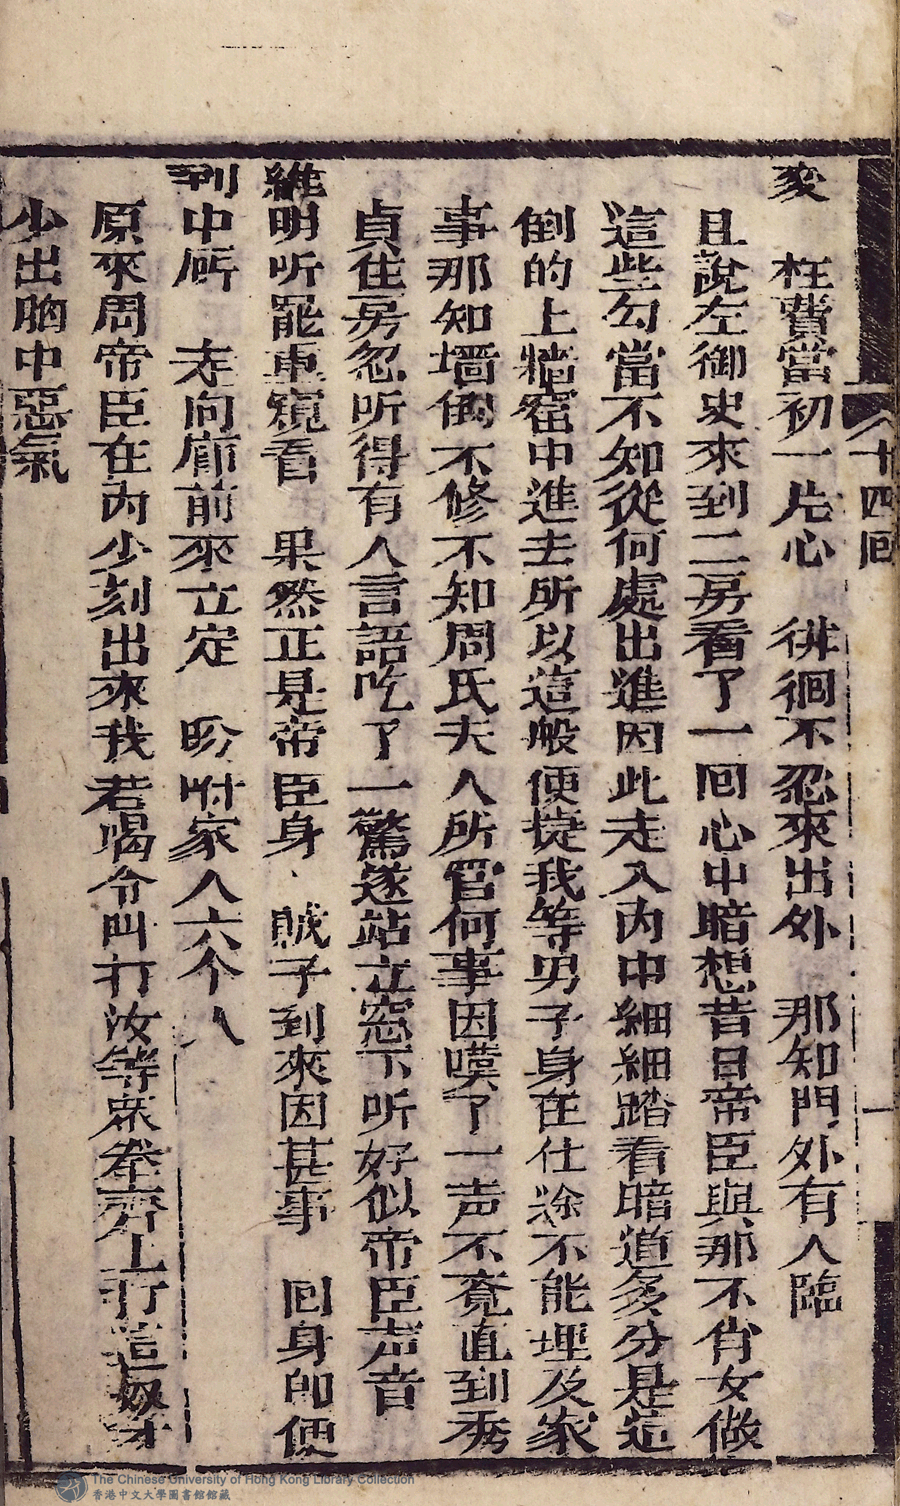 十四囘
变　枉費當初一片心　徘徊不忍來出外　那知門外有人臨
且說左御史來到二房看了一囘心中暗想昔日帝臣與那不肖女做
這些勾當不知從何處出進因此走入内中細細踏看暗道多分是這
倒的上牆窟中進去所以這般便捷我等男子身在仕途不能理及家
事那知墙倒不修不知周氏夫人所管何事因嘆了一声不覔直到秀
貞住房忽听得有人言語吃了一驚遂站立窓下听好似帝臣声音
維明听罷重窺看　果然正是帝臣身、賊子到來因甚事　囘身即便
到中所　走向廊前來立定　吩咐家人六个人
原來周帝臣在內少刻出來我若喝令叫打汝等衆拳齊上打這奴才
少出胸中惡氣
The Chinese University of Hong Kong Library Collection
香港中文大學圖書館館藏